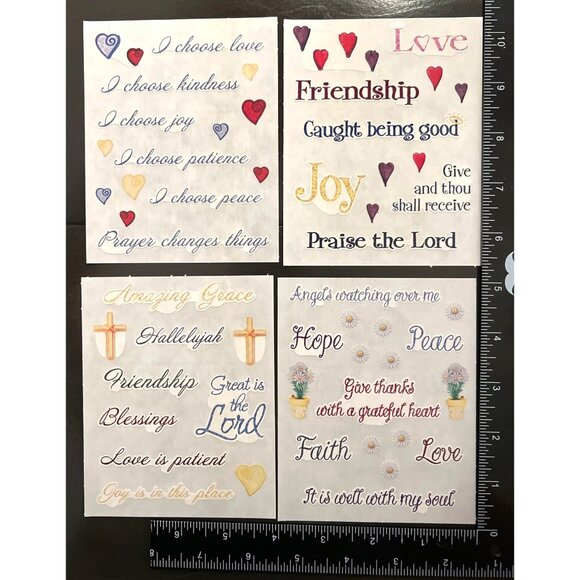 I choose love
I choose kindness
I choose joy
I choose patience
I choose peace
Prayer changes things
Love
Friendship
Caught being good
Joy
Give
and thou
shall receive
Praise the Lord
Amazing Grace
Hallelujah
Friendship
Great is
the
Lord
Blessings
Love is patient
Joy is in this place
Angels watching over me
Hope
Peace
Give thanks
with a grateful heart
Faith
Love
It is well with my soul
10
9
8
7
6
5
4
3
2
1
8
7
6
5
4
3
2
1